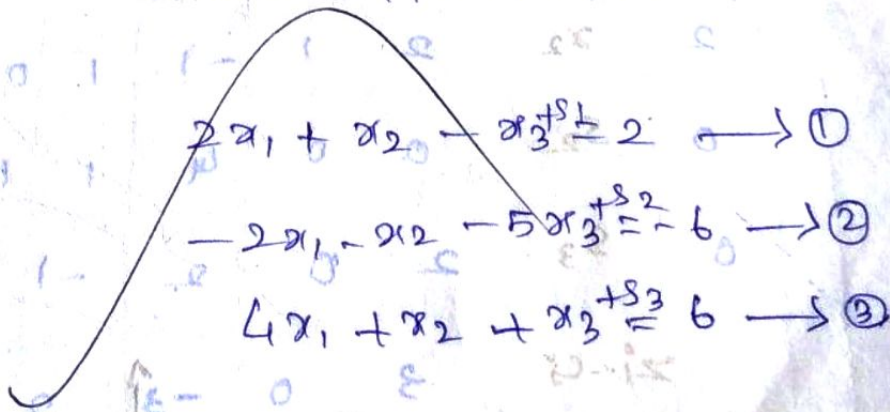 2x₁ + x₂ - x₃ + S1 = 2 → ①
-2x₁ - x₂ - 5x₃ + S2 = -6 → ②
4x₁ + x₂ + x₃ + S3 = 6 → ③